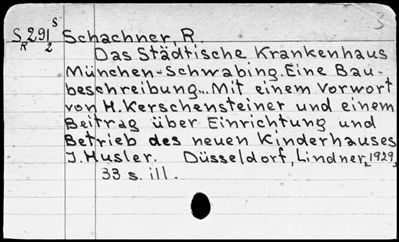 3
S 291 S Schachner, R.
R 2 Das Städtische Krankenhaus
München-Schwabing. Eine Bau-
beschreibung... Mit einem Vorwort
von H. Kerschensteiner und einem
Beitrag über Einrichtung und
Betrieb des neuen Kinderhauses
J. Husler. Düsseldorf, Lindner, 1929,
33 s. ill.